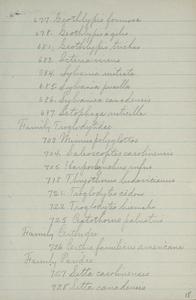 677. Geothlypis formosa
678. Geothlypis agilis
681. Geothlypis trichas
683. Icteria virens
684. Sylvania mitrata
685. Sylvania pusilla
686. Sylvania canadensis
687. Setophaga ruticilla
Family Troglodytidae
703. Mimus polyglottos
704. Galeoscoptes carolinensis
705. Harporhynchus rufus
718. Thryothorus ludovicianus
721. Troglodytes aedon
722. Troglodytes hiemalis
725. Cistothorus palustris
Family Certhiidae
726. Certhia familiaris americana
Family Paridae
727. Sitta carolinensis
728. Sitta canadensis